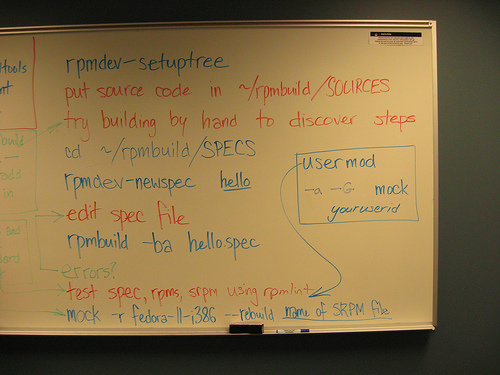 tools
nt
build
in
rpmdev-setuptree
put source code in ~/rpmbuild/SOURCES
try building by hand to discover steps
cd ~/rpmbuild/SPECS
rpmdev-newspec hello
edit spec file
rpmbuild -ba hello.spec
errors?
test spec, rpms, srpm using rpmlint
mock -r fedora-11-i386 --rebuild name of SRPM file
usermod
-a -G mock
youruserid